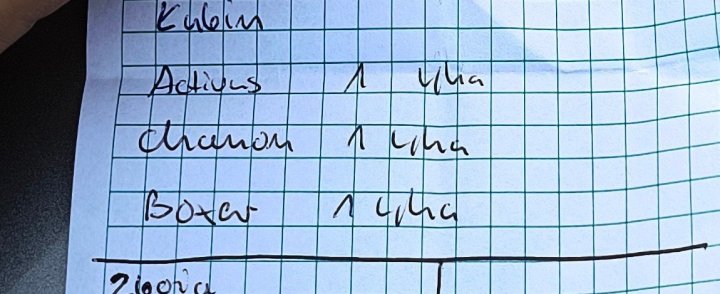 Activus 1 l/ha
Chanon 1 l/ha
Boxer 1 l/ha